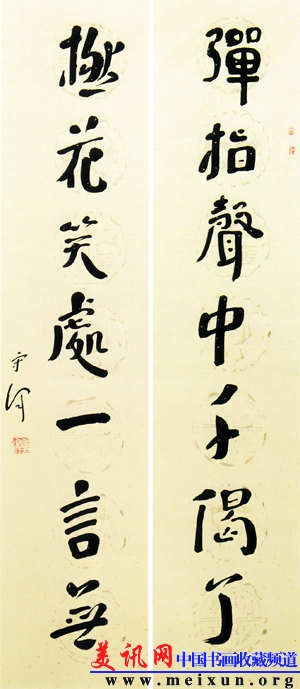 彈指聲中千偈了
撚花笑處一言無
美讯网 中国书画收藏频道
www.meixun.org